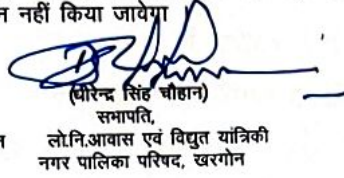 न नहीं किया जावेगा
(धीरेन्द्र सिंह चौहान)
सभापति,
लो.नि.आवास एवं विद्युत यांत्रिकी
नगर पालिका परिषद, खरगोन